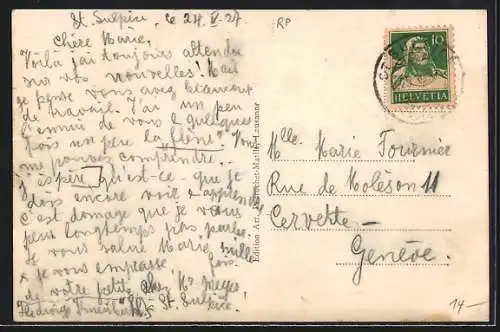 St. Sulpice, le 24. V. 27.
Chère Marie,
Voilà j'ai toujours attendu
sur vos nouvelles! Mais
je pense vous avez beaucoup
de travail. J'ai un peu
l'ennui de vous & quelques
fois un père la "flène" Vous
me pouvez comprendre. -
J'espère, qu'est-ce-que je
dois encore voir & apprendre
c'est domage que je vous
peux longtemps pas parler.
Je vous salue Marie mille
fois.
& je vous embrasse
de votre petite
chez Mr
St. Sulpice.
RP
10
HELVETIA
Edition Art. Lausanne
Mlle. Marie Fournier
Rue de Moléson 11
Cervette -
Genève.
14-